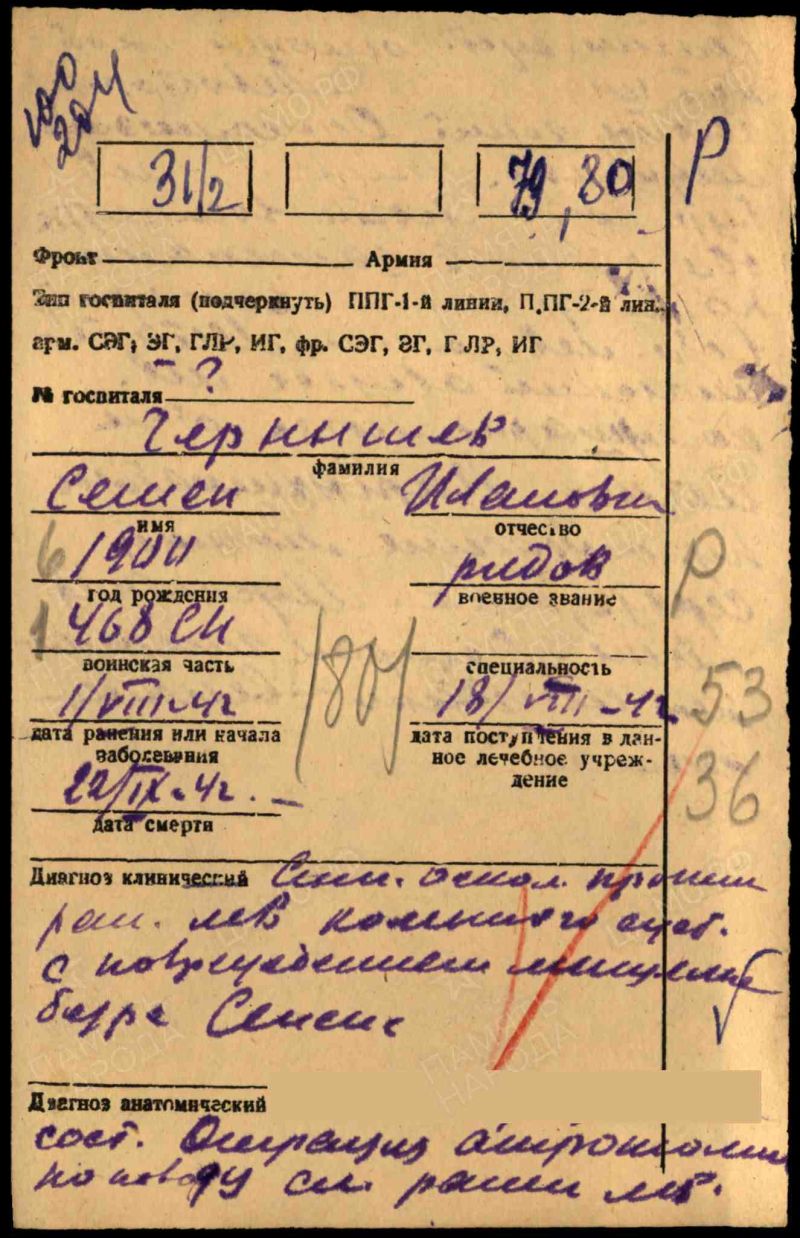 100
204
31/2
79,80
Р
Фронт Армия
Тип госпиталя (подчеркнуть) ППГ-1-й линии, П.ПГ-2-й лин.
арм. СЭГ, ЭГ, ГЛР, ИГ, фр. СЭГ, ЭГ, ГЛР, ИГ
?
№ госпиталя
Чернышев
фамилия
Семен Иванович
имя отчество
6 190 рядов Р
год рождения военное звание
1 468 СП
воинская часть специальность
180
1/VIII-42 18/VIII-42 53
дата ранения или начала заболевания
дата поступления в данное лечебное учреждение
36
22/IX-42.
дата смерти
Диагноз клинический оскол. прони
ран. лев коленного суст.
с повреждением мыщелка
бедра Сепсис
Диагноз анатомический
сост. Операция
по поводу ранен
ПАМЯТЬ
НАРОДА